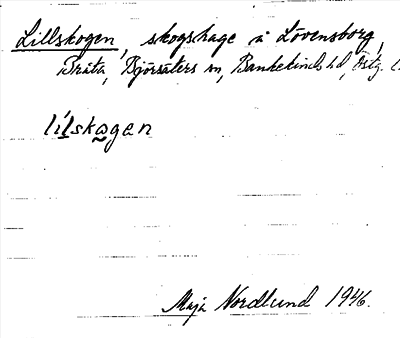 Lillskogen, skogshage å Lövensborg,
Bråta, Björsäters sn, Bankekinds hd, Östg. l.
lilskogen
Maja Nordlund 1946.